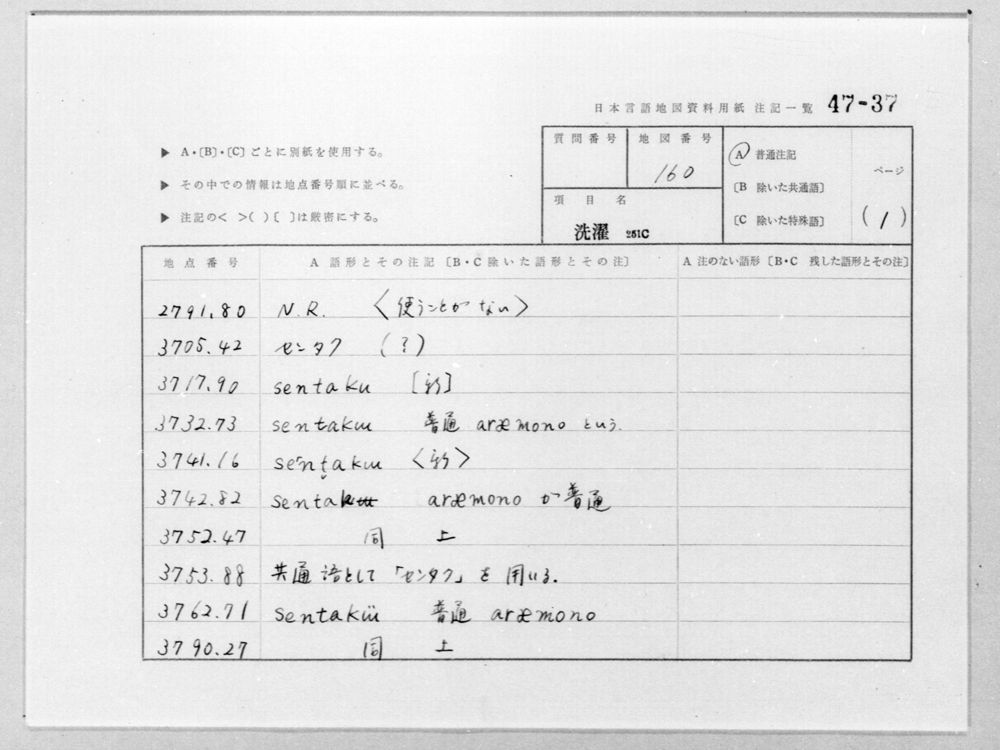 日本言語地図資料用紙 注記一覧 47-37
▶ A・〔B〕・〔C〕ごとに別紙を使用する。
▶ その中での情報は地点番号順に並べる。
▶ 注記の< >( )〔 〕は厳密にする。
質問番号 地図番号
160
項目名
洗濯 251C
A 普通注記
〔B 除いた共通語〕
〔C 除いた特殊語〕
ページ
(1)
地点番号 A 語形とその注記〔B・C除いた語形とその注〕 A 注のない語形〔B・C 残した語形とその注〕
2791.80 N.R. 〈使うことがない〉
3705.42 センタク (?)
3717.90 sentaku [新]
3732.73 sentakɯ 普通 aræmono という.
3741.16 sentakɯ 〈新〉
3742.82 sentakɯ aræmono が普通
3752.47 同 上
3753.88 共通語として「センタク」を用いる.
3762.71 sentakɯ̈ 普通 aræmono
3790.27 同 上